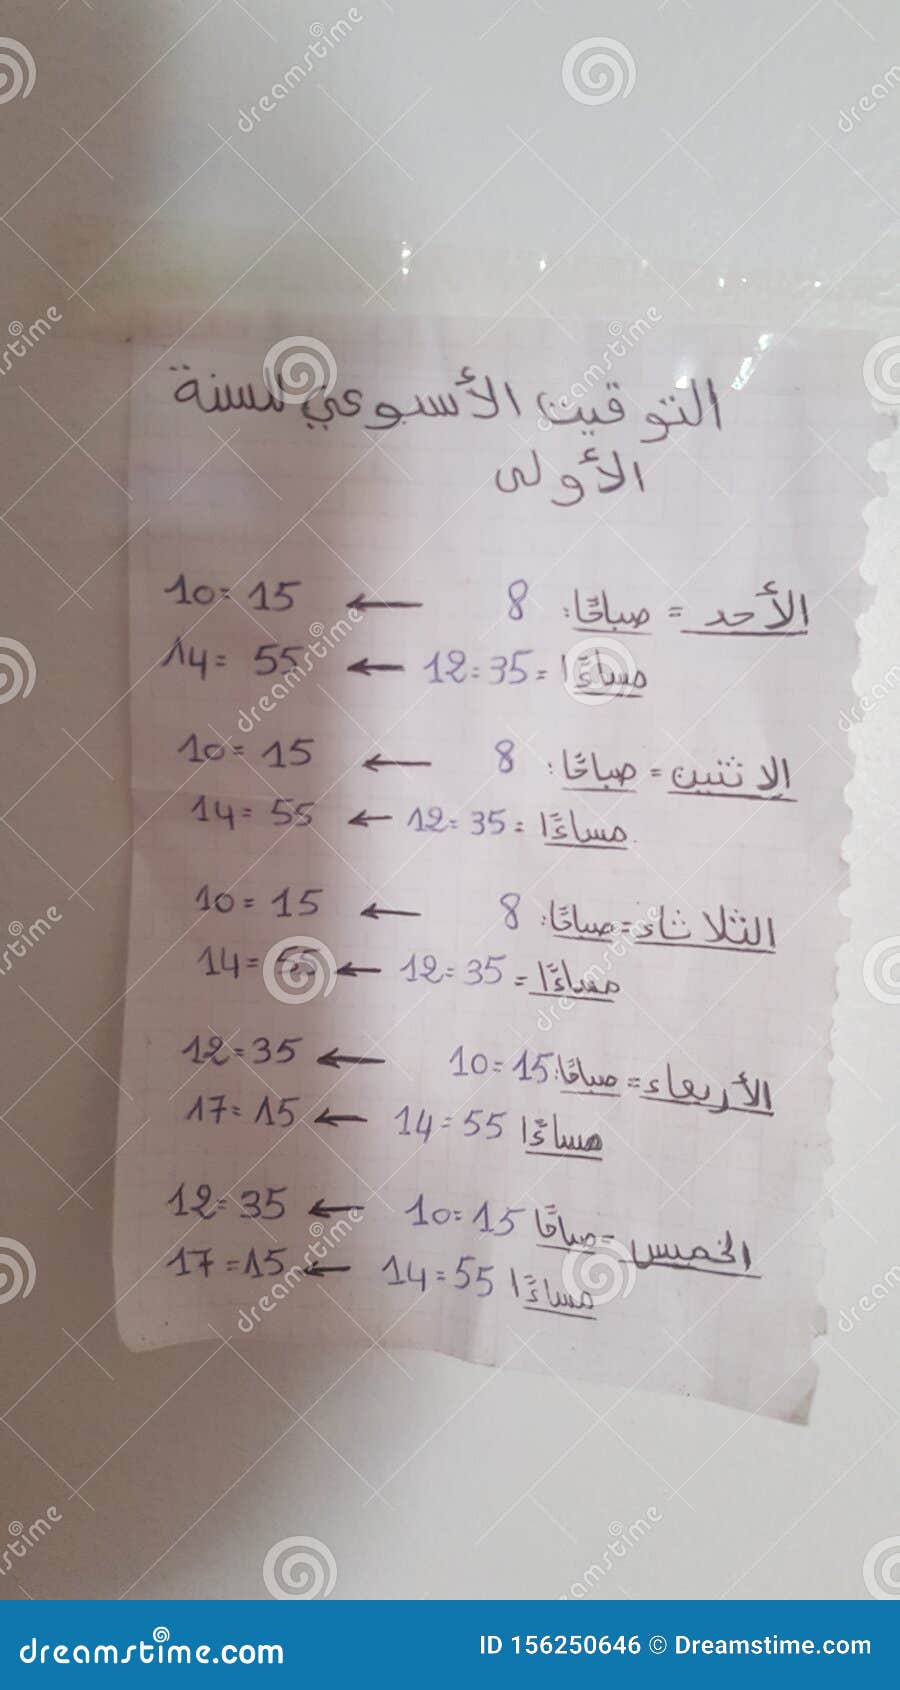 التوقيت الأسبوعي للسنة
الأولى
الأحد = صباحًا: 8 ← 10=15
مساءًا = 12=35 ← 14=55
الاثنين = صباحًا: 8 ← 10=15
مساءًا = 12=35 ← 14=55
الثلاثاء = صباحًا: 8 ← 10=15
مساءًا = 12=35 ← 14=55
الأربعاء = صباحًا: 10=15 ← 12=35
مساءًا 14=55 ← 17=15
الخميس = صباحًا 10=15 ← 12=35
مساءًا 14=55 ← 17=15
dreamstime.com
ID 156250646 © Dreamstime.com